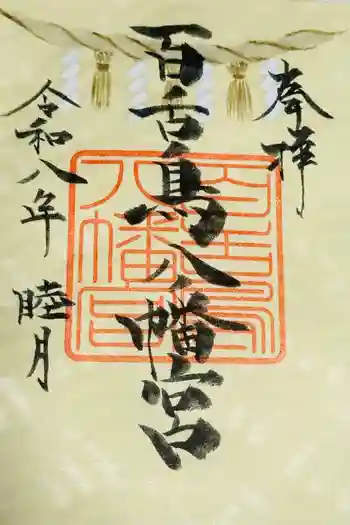 奉拝
百舌鳥八幡宮
百舌鳥
八幡宮
令和八年 睦月